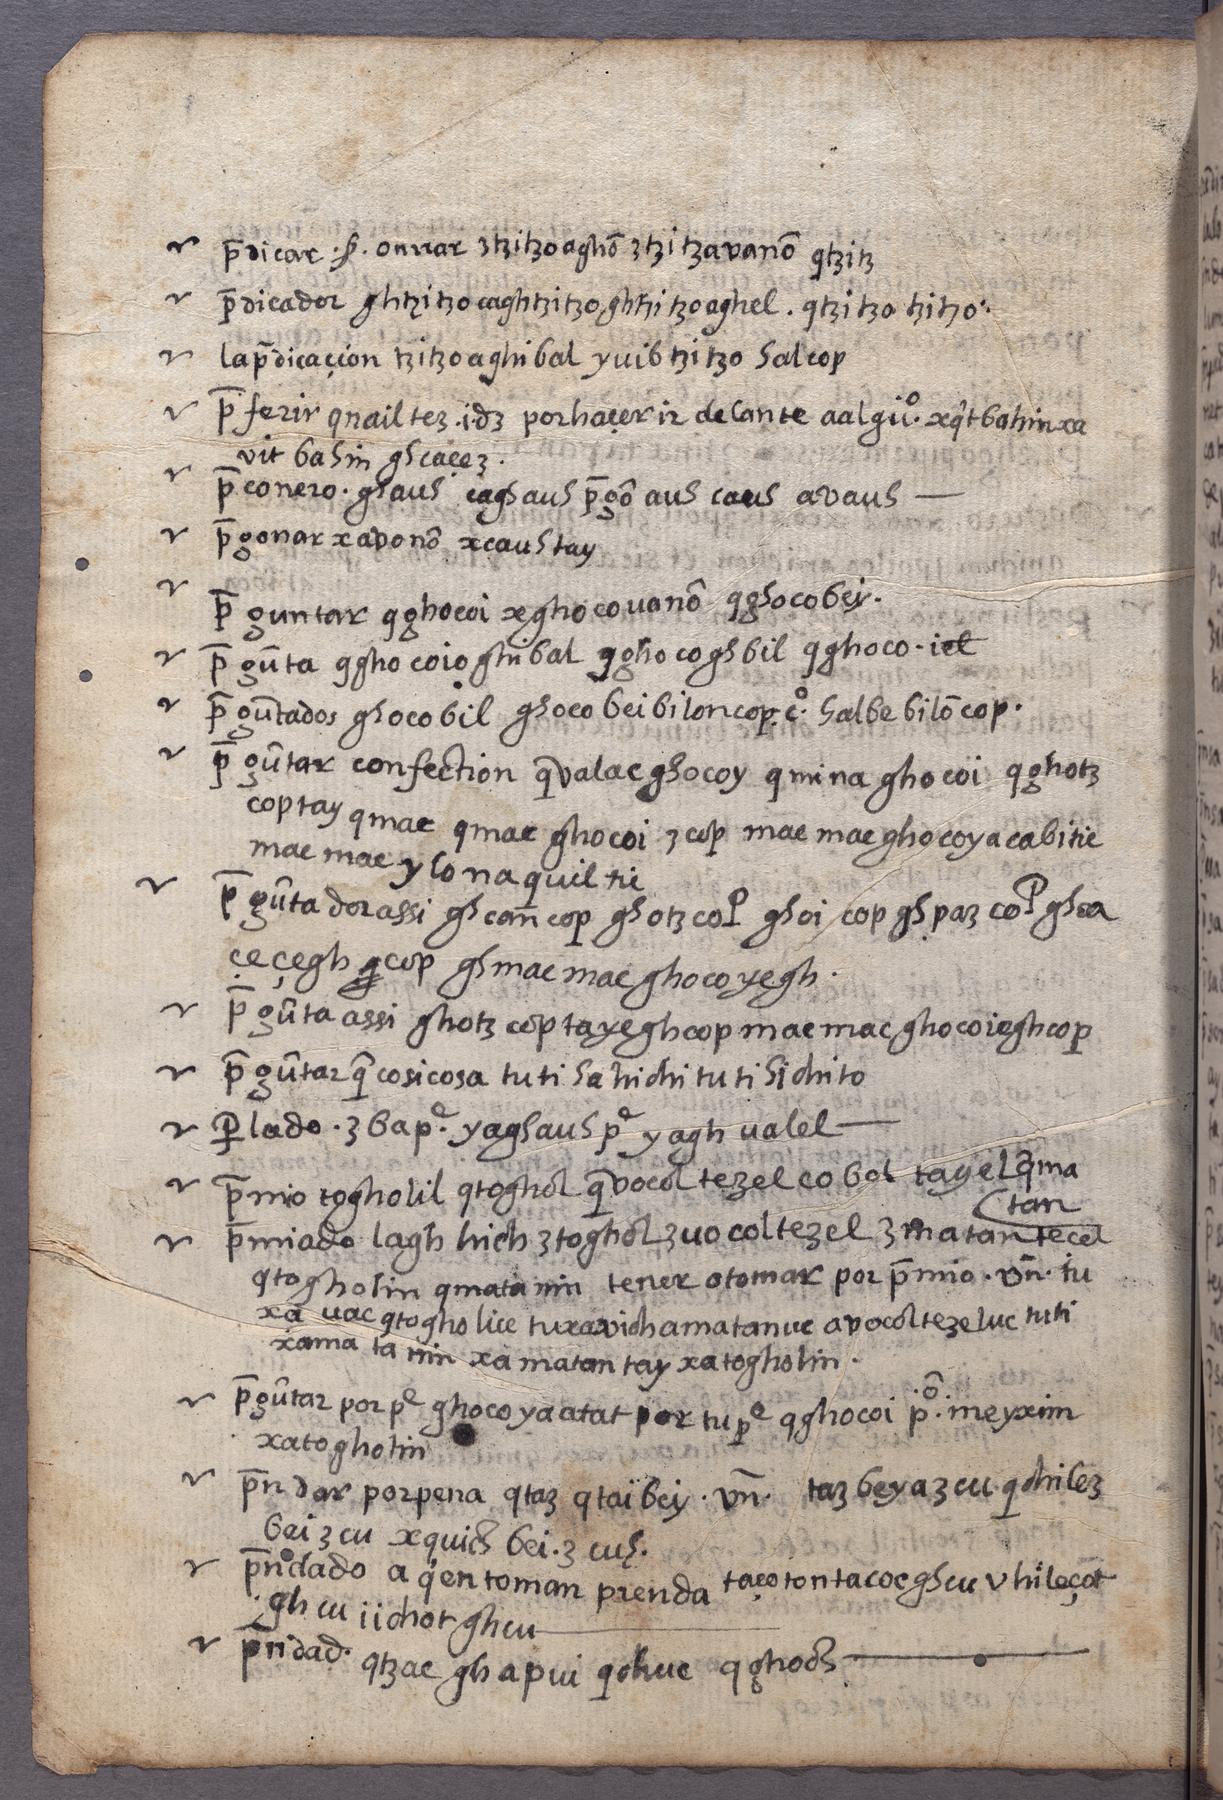 p̄dicar .s. onrrar ꜫtzitzoaghō ꜫtzitzavanō qtzitz
p̄dicador ghtzitzo caghtzitzo ghtzitzoaghel . qtzitzo tzitzo.
la p̄dicaçion tzitzoaghibal yuib tzitzo halcop
p̄ferir qnailtez .idꜫ por haçer ir delante aalguº. xq̄t bahin xa
vit bahin ghcaçeꜫ.
p̄conero . ghauh cagh auh p̄gō auh cauh avauh —
p̄gonar xavonō xcauhtay
p̄guntar qghocoi xghocovanō qghocobei.
p̄gūta qghocoio ghibal qghocoghbil qghoco.iel
p̄gūtados ghocobil ghocobeibiloncop. cº. halbe bilōcop.
p̄gūtar confection q̄valac ghocoy qmina ghocoi qghotz
coptay qmac qmac ghocoi ꜫcop mac mac ghocoya cabitic
mac mac y lo naquiltic
p̄gūtador assi gh can̄cop ghotz cop ghoi cop gh paꜫ cop gh ca
çe çegh cop gh mac mac ghocoyegh.
p̄gūta assi ghotz coptayeghcop mac mac ghocoieghcop
p̄gūtar q̄ cosicosa tuti hahichi tuti hichito
p̄lado . ꜫbapᵉ. yaghauh pᵉ yagh valel —
p̄mio togholil qtoghol q̄vocoltezel cobol tayel q̄ma
tan
p̄miado lagh hich ꜫtoghol ꜫuocoltezel ꜫmatantecel
qtogholin qmatanin tener o tomar por p̄mio . vn̄. tu
xa uac qtogholic tuxavichamatanuc avocoltezeluc tuti
xama tanin xamatantay xatogholin.
p̄gūtar por pᵉ ghocoya atat por tu pᵉ qghocoi p.º ineyxim
xatogholin
p̄ndar por pena qtaꜫ qtaïbey . vn̄. taꜫbeyaꜫcu qchileꜫ
beiꜫcu xquich bei.ꜫcuh.
p̄ndado a q̄en toman prenda taço tontacoc ghcu vhileçot
ghcu iichot ghcu
p̄ndad. qtzac gh apui qchuc qghoch —